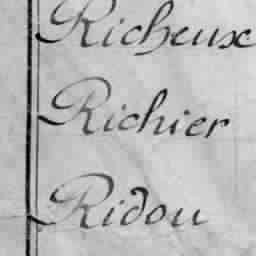 Richeux
Richier
Ridou